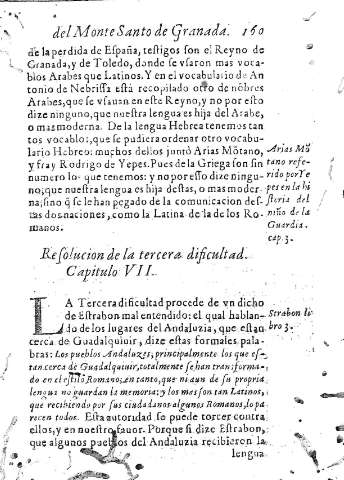 del Monte Santo de Granada. 160
de la perdida de España, testigos son el Reyno de
Granada, y de Toledo, donde se vsaron mas voca-
blos Arabes que Latinos. Y en el vocabulario de An
tonio de Nebrissa està recopilado otro de nõbres
Arabes, que se vsauan en este Reyno, y no por esto
dize ninguno, que nuestra lengua es hija del Arabe,
o mas moderna. De la lengua Hebrea tenemos tan
tos vocablos, que se pudiera ordenar otro vocabu-
lario Hebreo: muchos dellos juntò Arias Mõtano,
y fray Rodrigo de Yepes. Pues de la Griega son sin
numero los que tenemos: y no por esso dize ningu-
no, que nuestra lengua es hija destas, o mas moder
na, sino q̃ se le han pegado de la comunicacion des-
tas dos naciones, como la Latina de la de los Ro-
manos.
Arias Mõ
tano refe-
rido por Ye
pes en la hi
storia del
niño de la
Guardia.
cap. 3.
Resolucion de la tercera dificultad.
Capitulo VII.
LA Tercera dificultad procede de vn dicho
de Estrabon mal entendido: el qual hablan-
do de los lugares del Andaluzia, que estan
cerca de Guadalquiuir, dize estas formales pala-
bras: Los pueblos Andaluzes, principalmente los que es-
tan cerca de Guadalquiuir, totalmente se han transforma-
do en el estilo Romano, en tanto, que ni aun de su propria
lengua no guardan la memoria: y los mas son tan Latinos,
que recibiendo por sus ciudadanos algunos Romanos, lo pa
recen todos. Esta autoridad se puede torcer contra
ellos, y en nuestro fauor. Porque si dize Estrabon,
que algunos pueblos del Andaluzia recibieron la
lengua
Strabon li
bro 3.